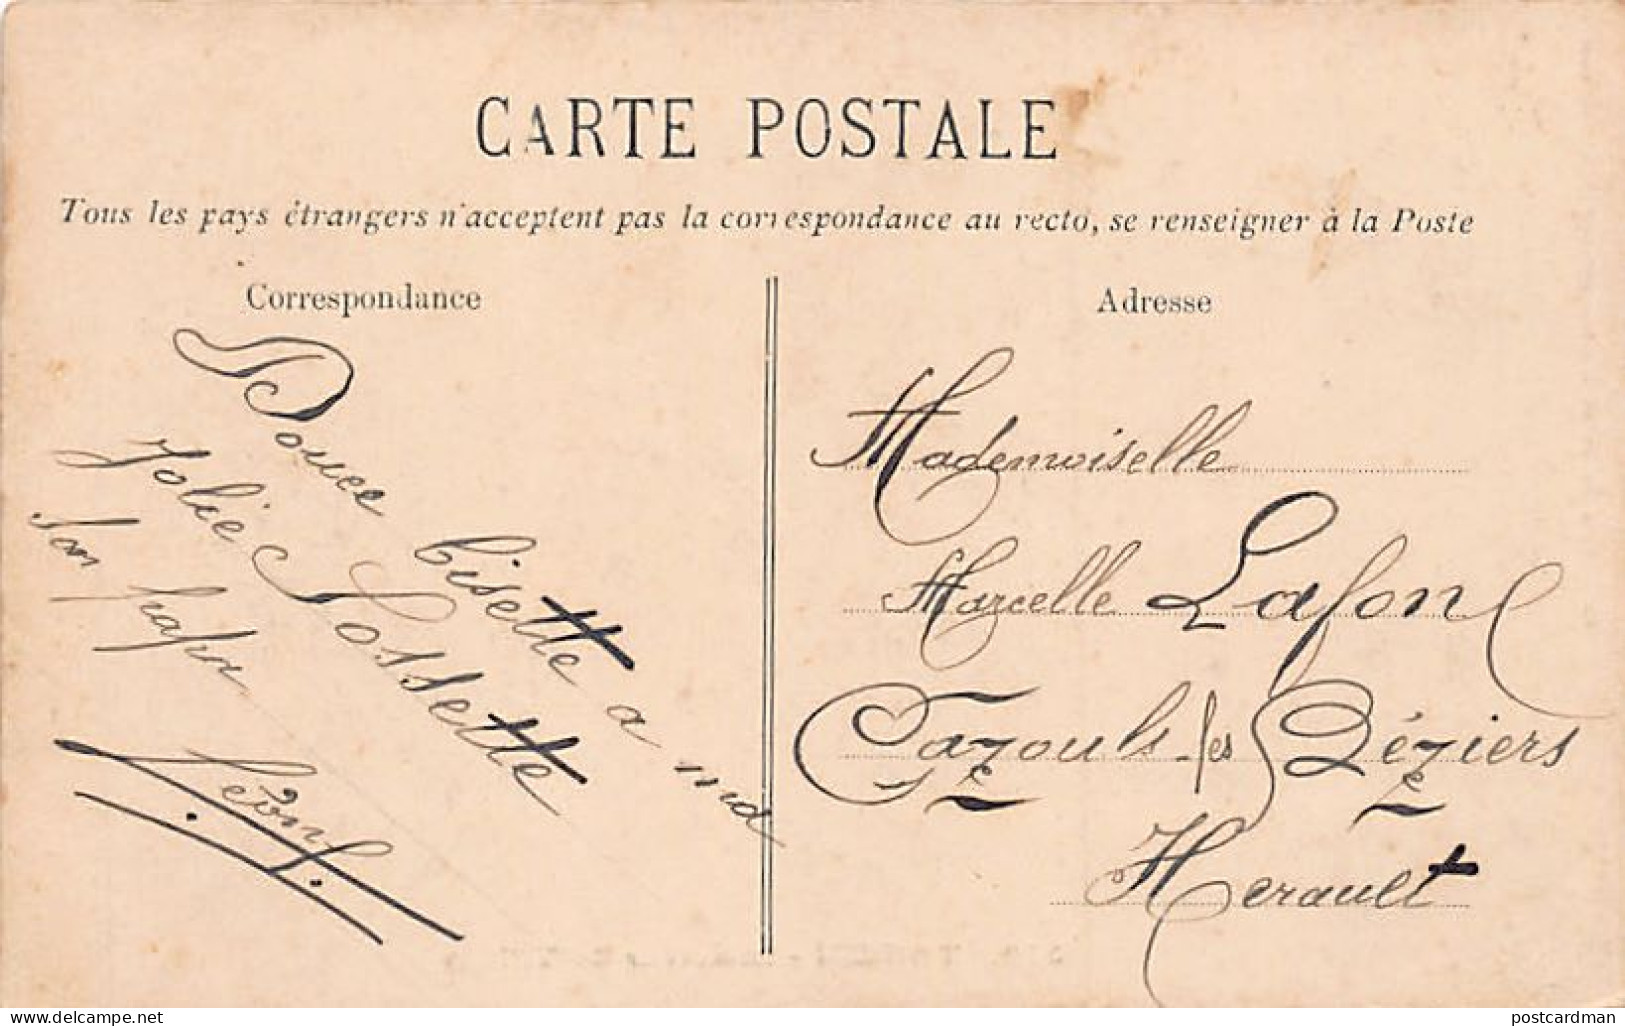 CARTE POSTALE
Tous les pays étrangers n'acceptent pas la correspondance au recto, se renseigner à la Poste
Correspondance
Douce bisette a ma
Jolie Sossette
Son
Léon
Adresse
Mademoiselle
Marcelle Lafon
Cazouls les Béziers
Herault
delcampe.net
postcardman